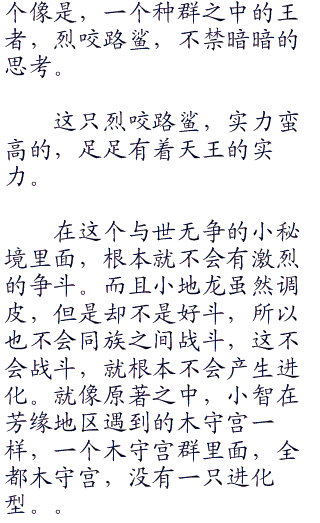 个像是，一个种群之中的王
者，烈咬路鲨，不禁暗暗的
思考。
这只烈咬路鲨，实力蛮
高的，足足有着天王的实
力。
在这个与世无争的小秘
境里面，根本就不会有激烈
的争斗。而且小地龙虽然调
皮，但是却不是好斗，所以
也不会同族之间战斗，这不
会战斗，就根本不会产生进
化。就像原著之中，小智在
芳缘地区遇到的木守宫一
样，一个木守宫群里面，全
都木守宫，没有一只进化
型。。